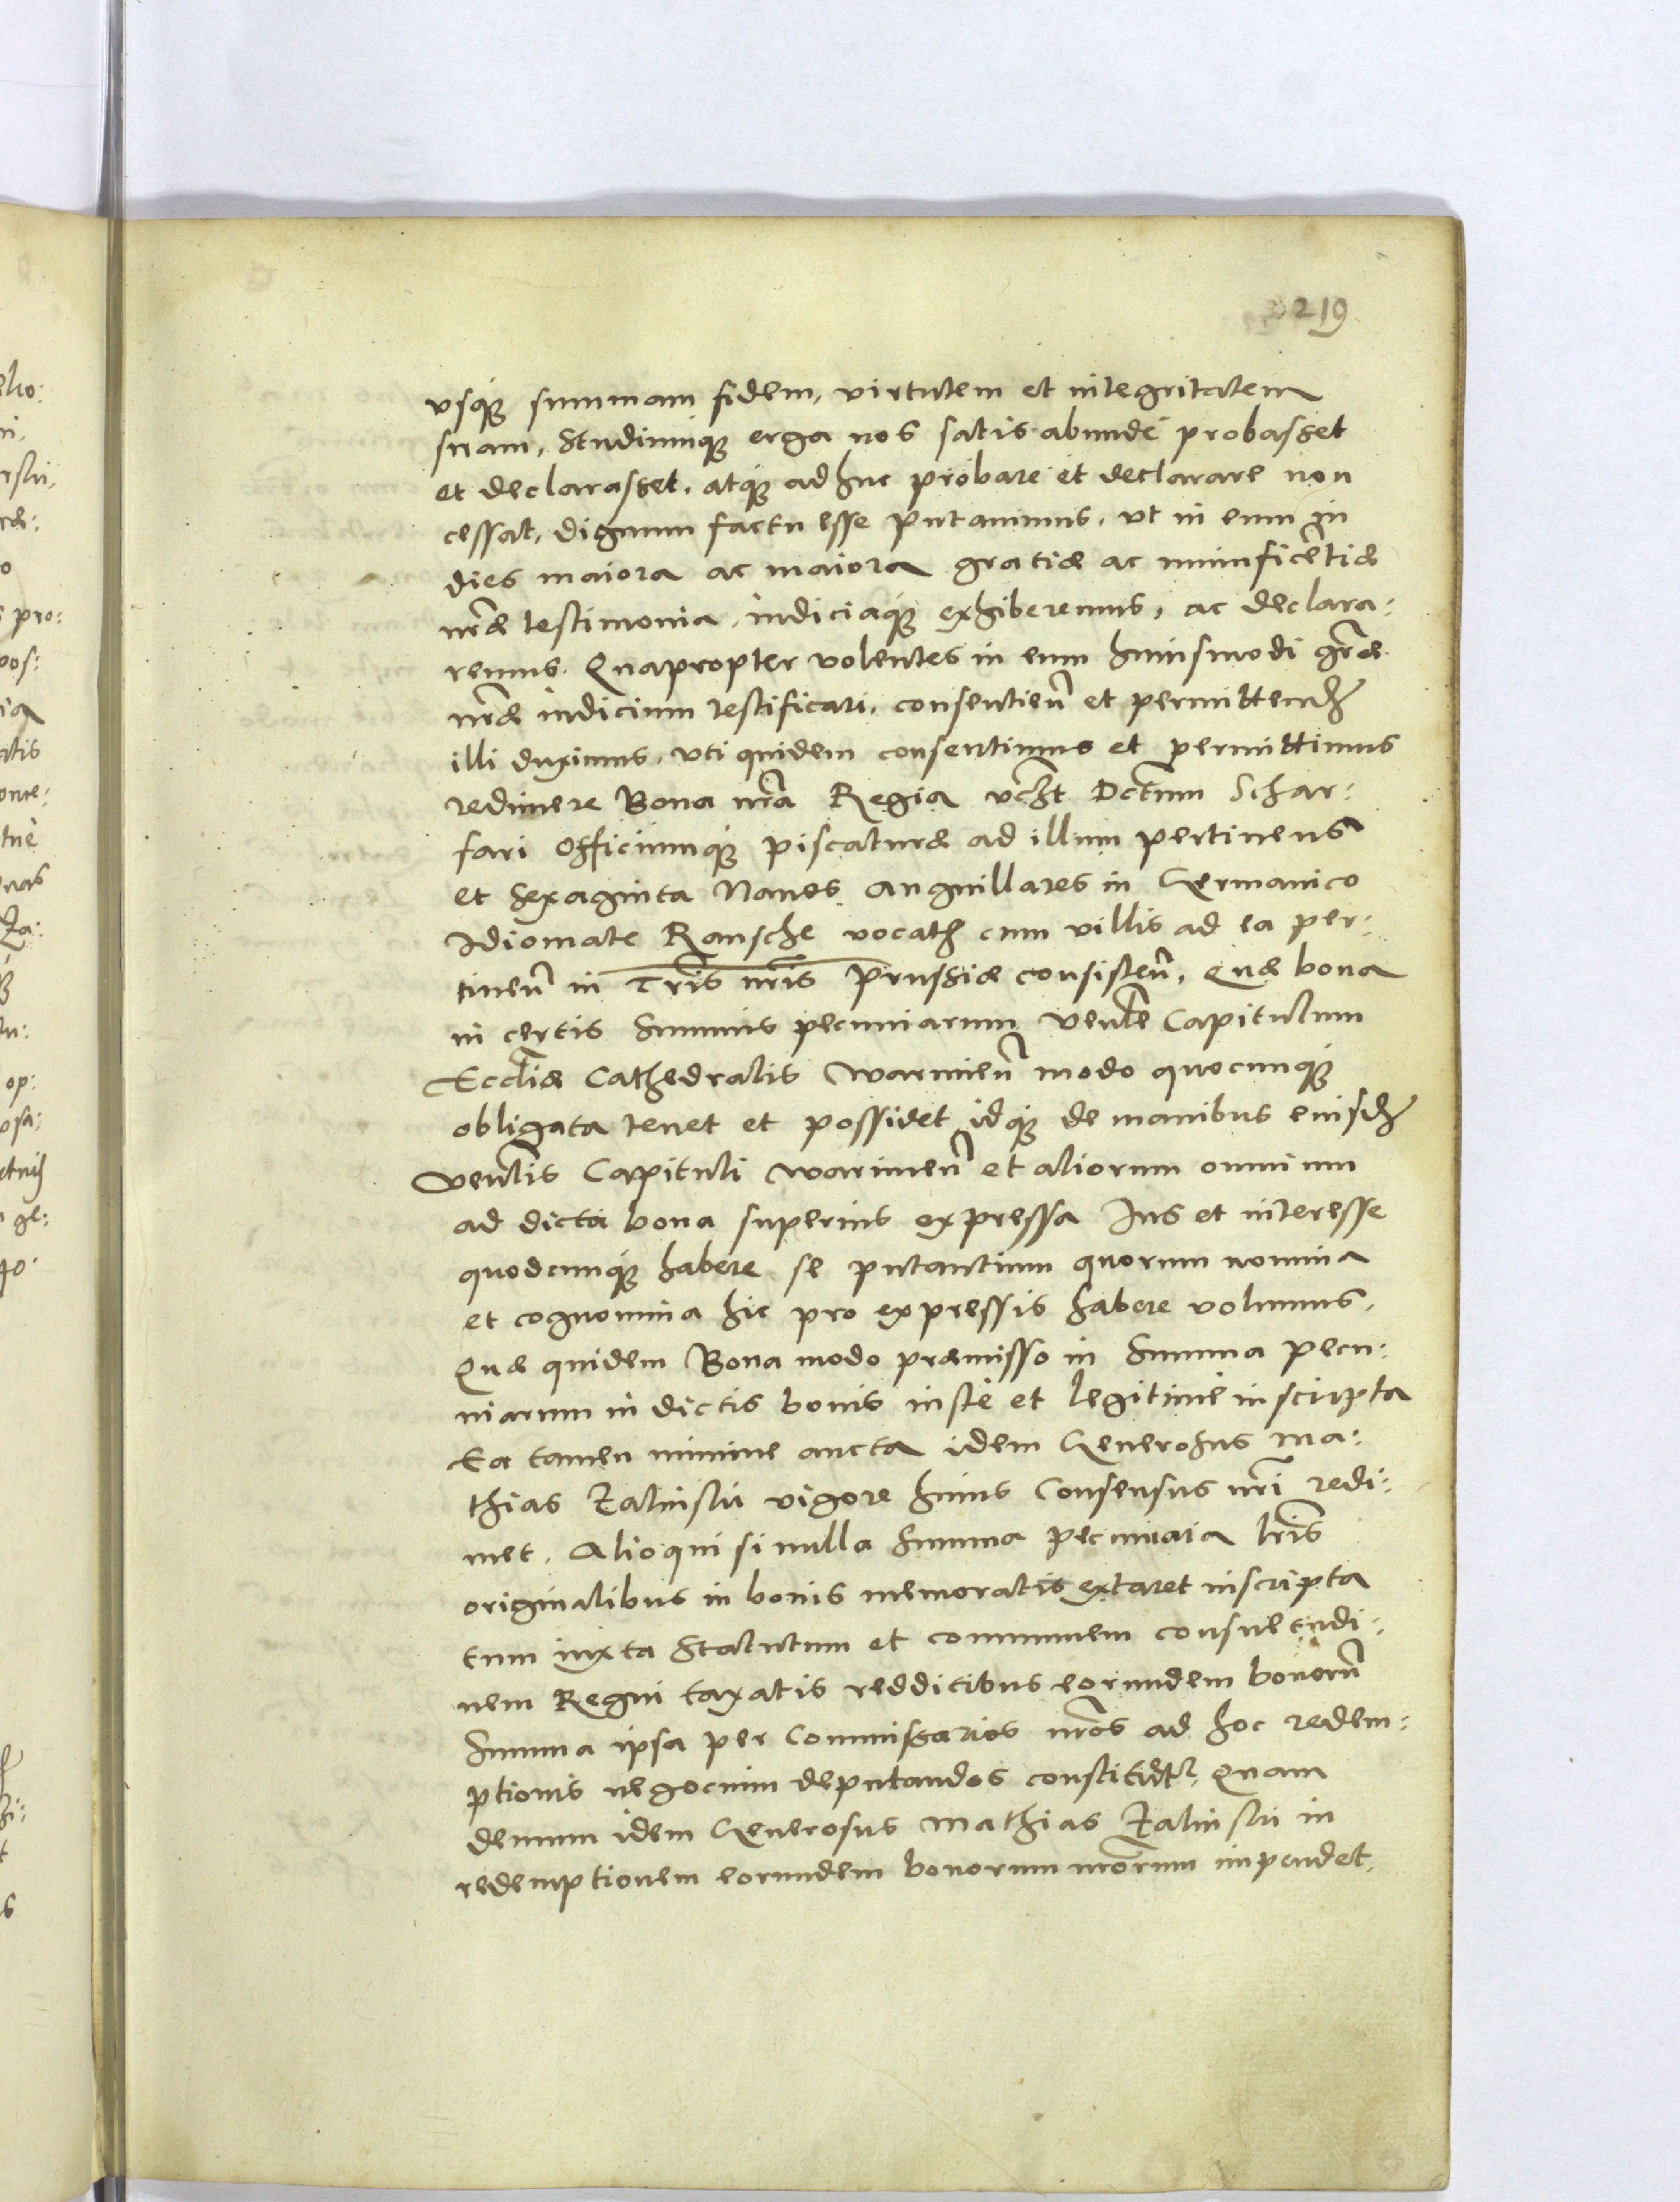 219
vsq₃ summam fidem, virtutem et integritatem
suam, Studiumq₃ erga nos satis abundè probasset
et declarasset, atq₃ adhuc probare et declarare non
cessat, dignum factu esse putauimus, vt in eum in
dies maiora ac maiora gratiæ ac munificẽtiæ
nr̃æ testimonia, indiciaq₃ exhiberemus, ac declara:
remus. Quapropter volentes in eum huiusmodi gr̃æ
nr̃æ indicium testificari, consentien̄ et permittend̄
illi duximus, vti quidem consentimus et permittimus
redimere Bona nr̃a Regia vc̃zt Dctum Schar:
fari Officiumq₃ piscaturæ ad illum pertinens
et Sexaginta Naues anguillares in Germanico
Idiomate Kansche vocat̄ cum villis ad ea per:
tinen̄ in Tr̃is nr̃is Prussiæ consisten̄, Quæ bona
in certis Summis pecuniarum Venl̃e Capitulum
Eccl̃iæ Cathedralis Warmien̄ modo quocunq₃
obligata tenet et possidet idq₃ de manibus eiusd̄
Venl̃is Capituli Warmien̄ et aliorum omnium
ad dicta bona superius expressa Ius et interesse
quodcunq₃ habere se putantium quorum nomina
et cognomina hic pro expressis habere volumus.
Quæ quidem Bona modo præmisso in Summa pecu:
niarum in dictis bonis iustè et legitimè inscripta
Ea tamen minime aucta idem Generosus Ma:
thias Zalinski vigore huius Consensus nr̃i redi:
met. Alioqui si nulla Summa pecuniaria lr̃is
originalibus in bonis memoratis extaret inscripta
tum iuxta Statutum et communem consuetudi:
nem Regni taxatis redditibus eorundem bonorũ
Summa ipsa per Commissarios nr̃os ad hoc redem:
ptionis negocium deputandos constituet᷑, Quam
demum idem Generosus Mathias Zalinski in
redemptionem eorundem bonorum nr̃orum impendet.